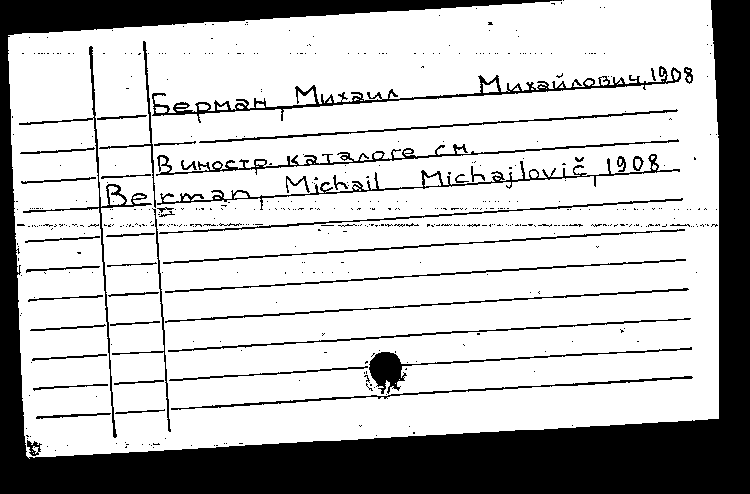 Берман, Михаил Михайлович, 1908
В иностр. каталоге см.
Berman, Michail Michajlovič, 1908